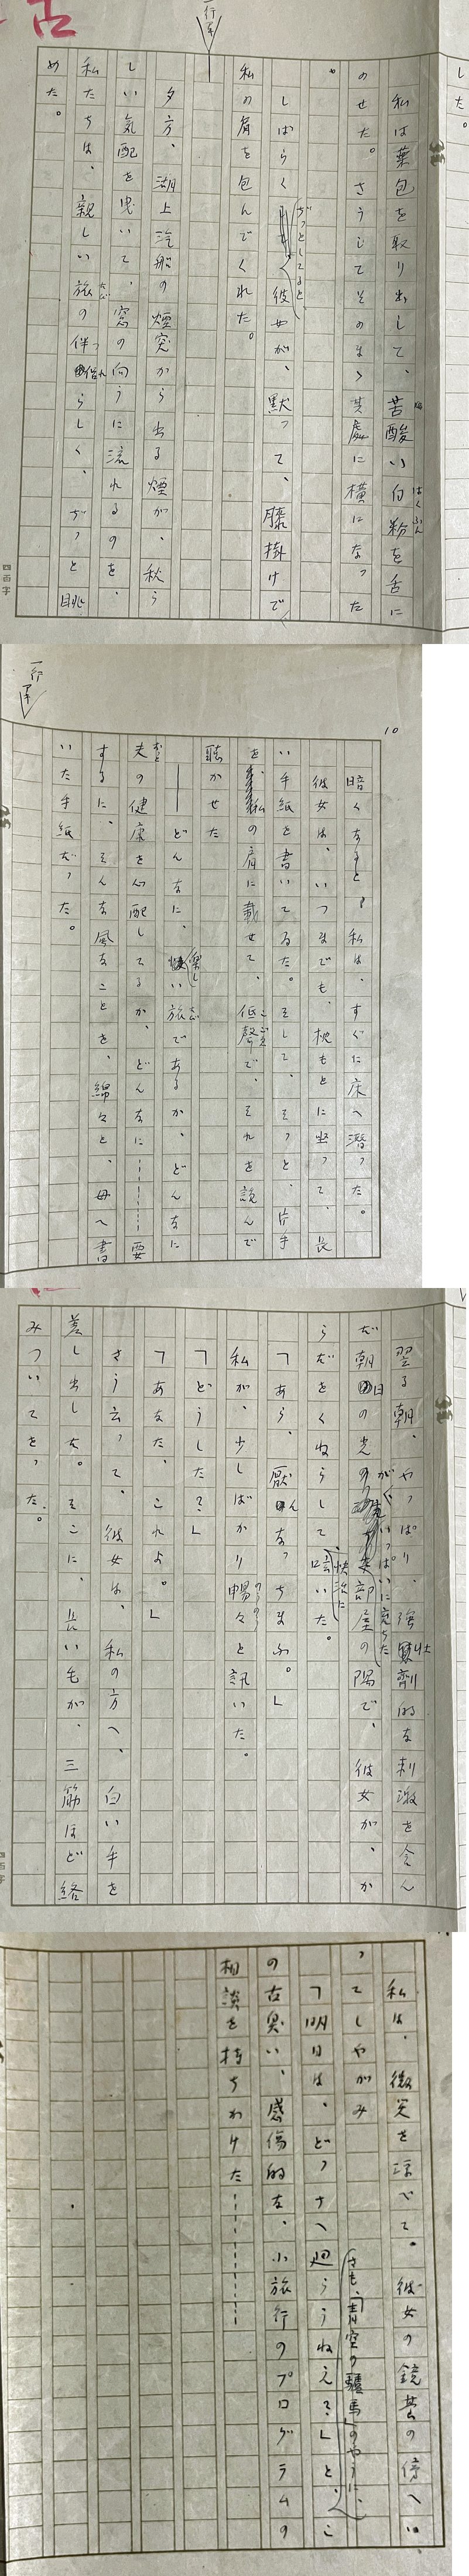 した。
私は葉包を取り出して、苦酸い白粉を舌に
はくふん
のせた。さうしてそのまゝ其處に横になった
しばらくぢっとしてると、彼女が、黙って、膝掛けで
私の肩を包んでくれた。
一行アキ
夕方、湖上汽船の煙突から出る煙が、秋ら
しい気配を曳いて、窓の向うに流れるのを、
私たちは、親しい旅の伴侶らしく、ぢっと眺
たび
つれ
めた。
四百字
10
暗くなると、私は、すぐに床へ潜った。
彼女は、いつまでも、枕もとに坐って、長
い手紙を書いてゐた。そして、そっと、片手
を、私の肩に載せて、低聲で、それを読んで
こごゑ
聴かせた
――どんなに、楽しい旅であるか、どんなに
たび
夫の健康を心配してるか、どんなに……要
おっと
するに、そんな風なことを、綿々と、母へ書
いた手紙だった。
一行アキ
翌る朝、やっぱり、強壮剤的な刺激を含ん
だ朝日の光がいっぱいに充ちた部屋の隅で、彼女が、か
らだをくねらして、快活に呟いた。
「あら、厭んなっちまふ。」
私が、少しばかり暢々と訊いた。
のうのう
「どうしたえ?」
「あなた、これよ。」
さう云って、彼女は、私の方へ、白い手を
差し出した。そこに、長い毛が、三筋ほど絡
みついてゐた。
四百字
私は、微笑を浮べて。彼女の鏡台の傍へい
ってしゃがみ
さも、「青空の驢馬」のやうに、
「明日は、どっちへ廻らうねえ?」と、こ
の古臭い、感傷的な、小旅行のプログラムの
相談を持ちかけた……